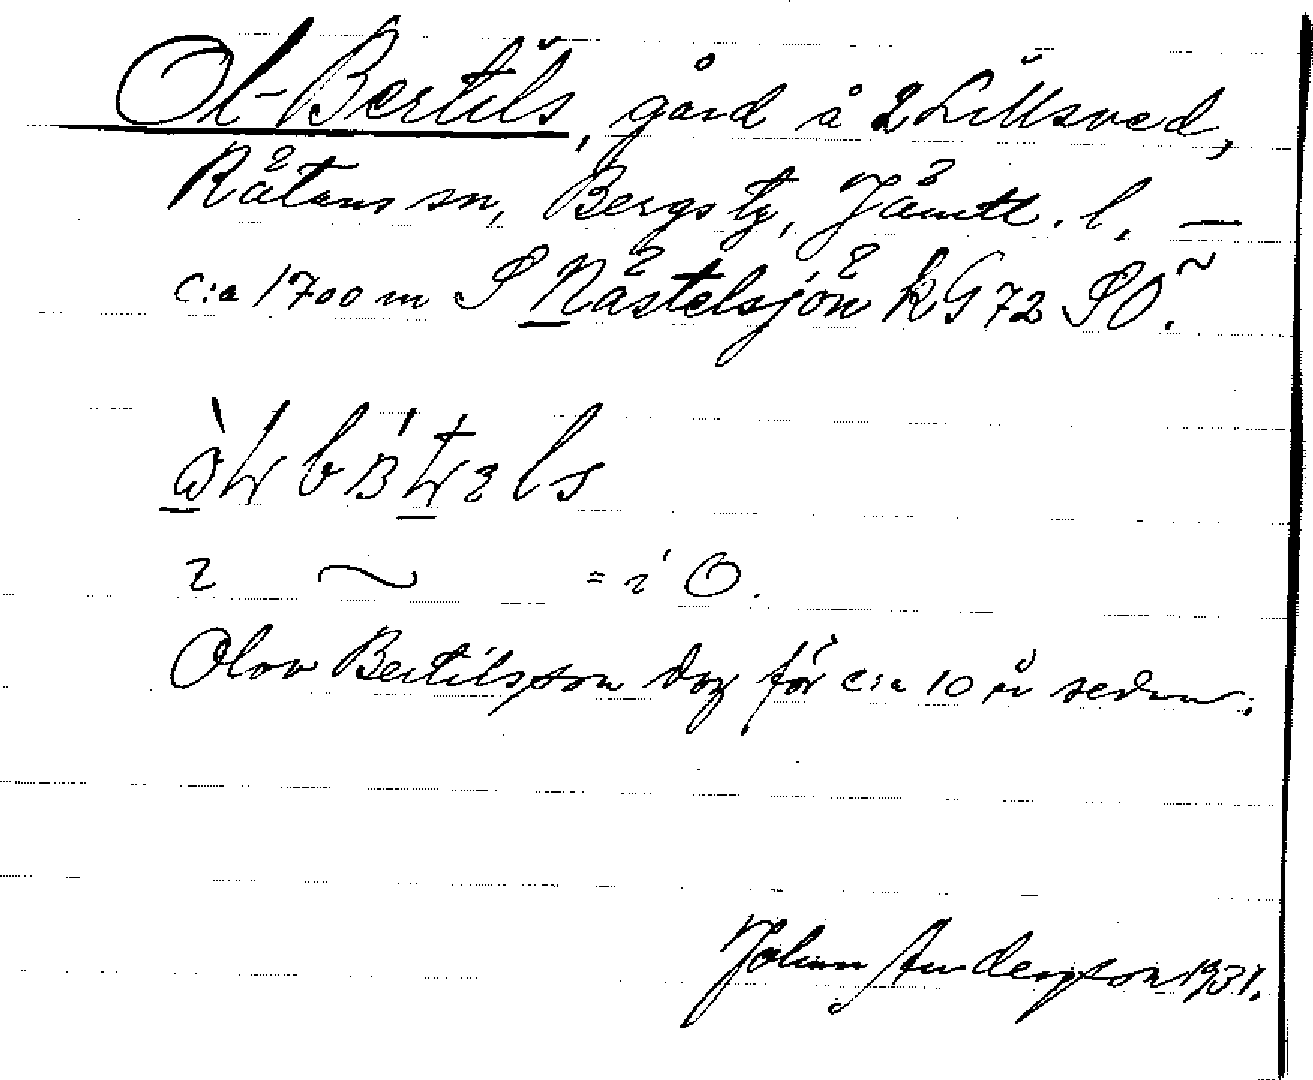 Ol-Bertils, gård å 2 Lillsved,
Råtans sn, Bergs tg, Jämtl. l. —
c:a 1700 m S Nästelsjön kG 72 SO.
i ~ = i O.
Olov Bertilsson dog för c:a 10 år sedan.
Johan Andersson 1931.